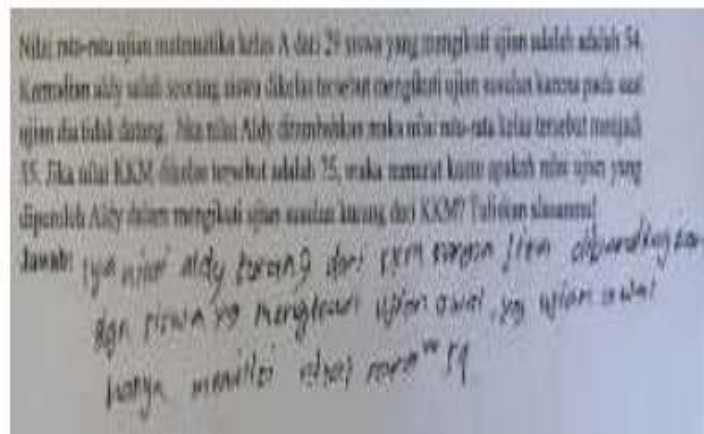 Nilai rata-rata ujian matematika kelas A dari 29 siswa yang mengikuti ujian adalah adalah 54.
Kemudian aldy salah seorang siswa dikelas tersebut mengikuti ujian susulan karena pada saat
ujian dia tidak datang. Jika nilai Aldy ditambahkan maka nilai rata-rata kelas tersebut menjadi
55. Jika nilai KKM dikelas tersebut adalah 75, maka menurut kamu apakah nilai ujian yang
diperoleh Aldy dalam mengikuti ujian susulan kurang dari KKM? Tuliskan alasanmu!
Jawab: iya nilai aldy kurang dari KKM karena jika dibandingkan
dgn siswa yg mengikuti ujian awal, yg ujian awal
hanya memiliki rata"